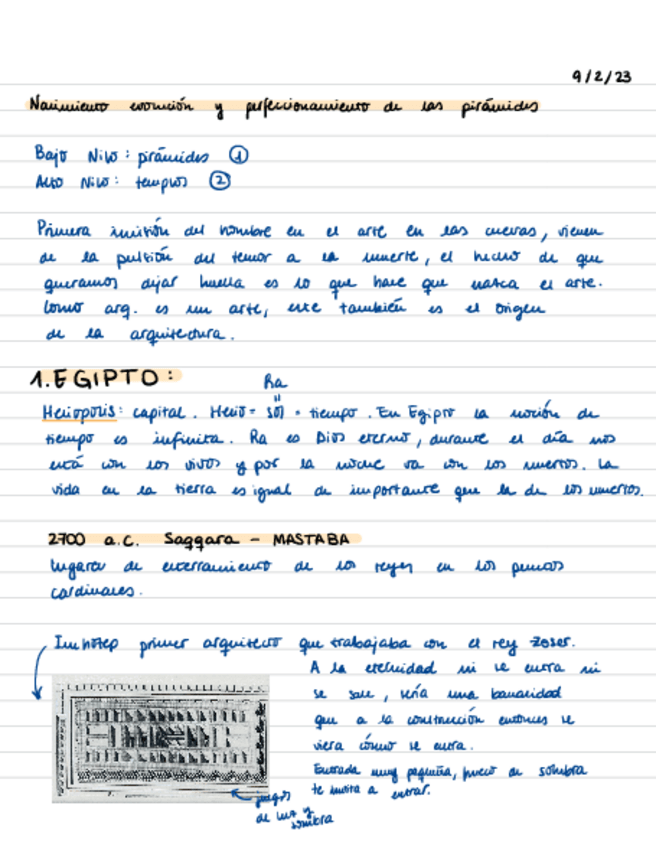 9/2/23
Nacimiento evolución y perfeccionamiento de las pirámides
Bajo Nilo: pirámides ①
Alto Nilo: templos ②
Primera intuición del hombre en el arte en las cuevas, vienen
de la pulsión del temor a la muerte, el hecho de que
queramos dejar huella es lo que hace que nazca el arte.
Como arq. es un arte, este también es el origen
de la arquitectura.
1. EGIPTO:
Ra
"
Heliopolis: capital. Helio = sol = tiempo. En Egipto la noción de
tiempo es infinita. Ra es Dios eterno, durante el día nos
está con los vivos y por la noche va con los muertos. La
vida en la tierra es igual de importante que la de los muertos.
2700 a.C. Saqqara - MASTABA
lugares de enterramiento de los reyes en los puntos
cardinales.
Imhotep primer arquitecto que trabajaba con el rey Zoser.
A la eternidad ni se entra ni
se sale, sería una banalidad
que a la construcción entonces se
viera cómo se entra.
Entrada muy pequeña, hueco en sombra
te invita a entrar.
juegos
de luz y
sombra